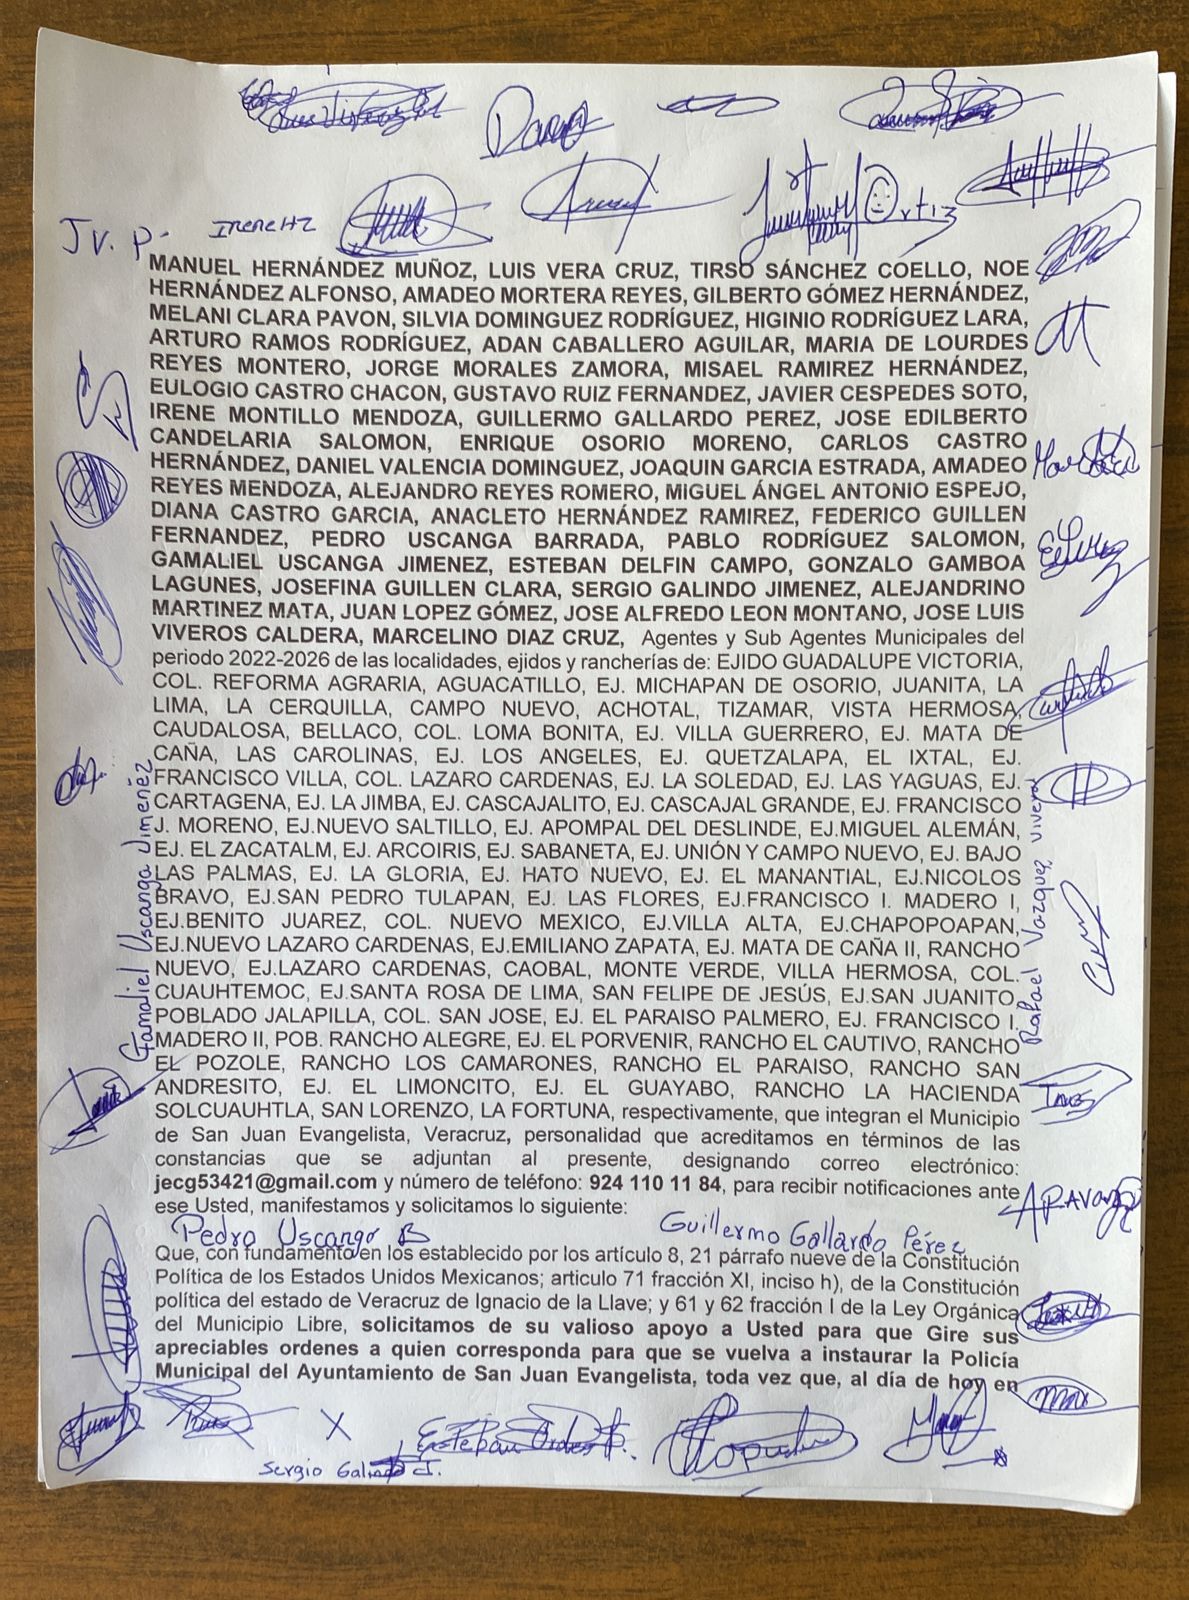 Irene HZ
Jv. p.
MANUEL HERNÁNDEZ MUÑOZ, LUIS VERA CRUZ, TIRSO SÁNCHEZ COELLO, NOE
HERNÁNDEZ ALFONSO, AMADEO MORTERA REYES, GILBERTO GÓMEZ HERNÁNDEZ,
MELANI CLARA PAVON, SILVIA DOMINGUEZ RODRÍGUEZ, HIGINIO RODRÍGUEZ LARA,
ARTURO RAMOS RODRÍGUEZ, ADAN CABALLERO AGUILAR, MARIA DE LOURDES
REYES MONTERO, JORGE MORALES ZAMORA, MISAEL RAMIREZ HERNÁNDEZ,
EULOGIO CASTRO CHACON, GUSTAVO RUIZ FERNANDEZ, JAVIER CESPEDES SOTO,
IRENE MONTILLO MENDOZA, GUILLERMO GALLARDO PEREZ, JOSE EDILBERTO
CANDELARIA SALOMON, ENRIQUE OSORIO MORENO, CARLOS CASTRO
HERNÁNDEZ, DANIEL VALENCIA DOMINGUEZ, JOAQUIN GARCIA ESTRADA, AMADEO
REYES MENDOZA, ALEJANDRO REYES ROMERO, MIGUEL ÁNGEL ANTONIO ESPEJO,
DIANA CASTRO GARCIA, ANACLETO HERNÁNDEZ RAMIREZ, FEDERICO GUILLEN
FERNANDEZ, PEDRO USCANGA BARRADA, PABLO RODRÍGUEZ SALOMON,
GAMALIEL USCANGA JIMENEZ, ESTEBAN DELFIN CAMPO, GONZALO GAMBOA
LAGUNES, JOSEFINA GUILLEN CLARA, SERGIO GALINDO JIMENEZ, ALEJANDRINO
MARTINEZ MATA, JUAN LOPEZ GÓMEZ, JOSE ALFREDO LEON MONTANO, JOSE LUIS
VIVEROS CALDERA, MARCELINO DIAZ CRUZ, Agentes y Sub Agentes Municipales del
periodo 2022-2026 de las localidades, ejidos y rancherías de: EJIDO GUADALUPE VICTORIA,
COL. REFORMA AGRARIA, AGUACATILLO, EJ. MICHAPAN DE OSORIO, JUANITA, LA
LIMA, LA CERQUILLA, CAMPO NUEVO, ACHOTAL, TIZAMAR, VISTA HERMOSA,
CAUDALOSA, BELLACO, COL. LOMA BONITA, EJ. VILLA GUERRERO, EJ. MATA DE
CAÑA, LAS CAROLINAS, EJ. LOS ANGELES, EJ. QUETZALAPA, EL IXTAL, EJ.
FRANCISCO VILLA, COL. LAZARO CARDENAS, EJ. LA SOLEDAD, EJ. LAS YAGUAS, EJ.
CARTAGENA, EJ. LA JIMBA, EJ. CASCAJALITO, EJ. CASCAJAL GRANDE, EJ. FRANCISCO
J. MORENO, EJ.NUEVO SALTILLO, EJ. APOMPAL DEL DESLINDE, EJ.MIGUEL ALEMÁN,
EJ. EL ZACATALM, EJ. ARCOIRIS, EJ. SABANETA, EJ. UNIÓN Y CAMPO NUEVO, EJ. BAJO
LAS PALMAS, EJ. LA GLORIA, EJ. HATO NUEVO, EJ. EL MANANTIAL, EJ.NICOLOS
BRAVO, EJ.SAN PEDRO TULAPAN, EJ. LAS FLORES, EJ.FRANCISCO I. MADERO I,
EJ.BENITO JUAREZ, COL. NUEVO MEXICO, EJ.VILLA ALTA, EJ.CHAPOPOAPAN,
EJ.NUEVO LAZARO CARDENAS, EJ.EMILIANO ZAPATA, EJ. MATA DE CAÑA II, RANCHO
NUEVO, EJ.LAZARO CARDENAS, CAOBAL, MONTE VERDE, VILLA HERMOSA, COL.
CUAUHTEMOC, EJ.SANTA ROSA DE LIMA, SAN FELIPE DE JESÚS, EJ.SAN JUANITO,
POBLADO JALAPILLA, COL. SAN JOSE, EJ. EL PARAISO PALMERO, EJ. FRANCISCO I.
MADERO II, POB. RANCHO ALEGRE, EJ. EL PORVENIR, RANCHO EL CAUTIVO, RANCHO
EL POZOLE, RANCHO LOS CAMARONES, RANCHO EL PARAISO, RANCHO SAN
ANDRESITO, EJ. EL LIMONCITO, EJ. EL GUAYABO, RANCHO LA HACIENDA
SOLCUAUHTLA, SAN LORENZO, LA FORTUNA, respectivamente, que integran el Municipio
de San Juan Evangelista, Veracruz, personalidad que acreditamos en términos de las
constancias que se adjuntan al presente, designando correo electrónico:
jecg53421@gmail.com y número de teléfono: 924 110 11 84, para recibir notificaciones ante
ese Usted, manifestamos y solicitamos lo siguiente:
Pedro Uscanga B
Guillermo Gallardo Pérez
Que, con fundamento en los establecido por los artículo 8, 21 párrafo nueve de la Constitución
Política de los Estados Unidos Mexicanos; articulo 71 fracción XI, inciso h), de la Constitución
política del estado de Veracruz de Ignacio de la Llave; y 61 y 62 fracción I de la Ley Orgánica
del Municipio Libre, solicitamos de su valioso apoyo a Usted para que Gire sus
apreciables ordenes a quien corresponda para que se vuelva a instaurar la Policía
Municipal del Ayuntamiento de San Juan Evangelista, toda vez que, al día de hoy en
Gamaliel Uscanga Jimenéz
Rafael Vazquez viveros
X
Sergio Galindo J.